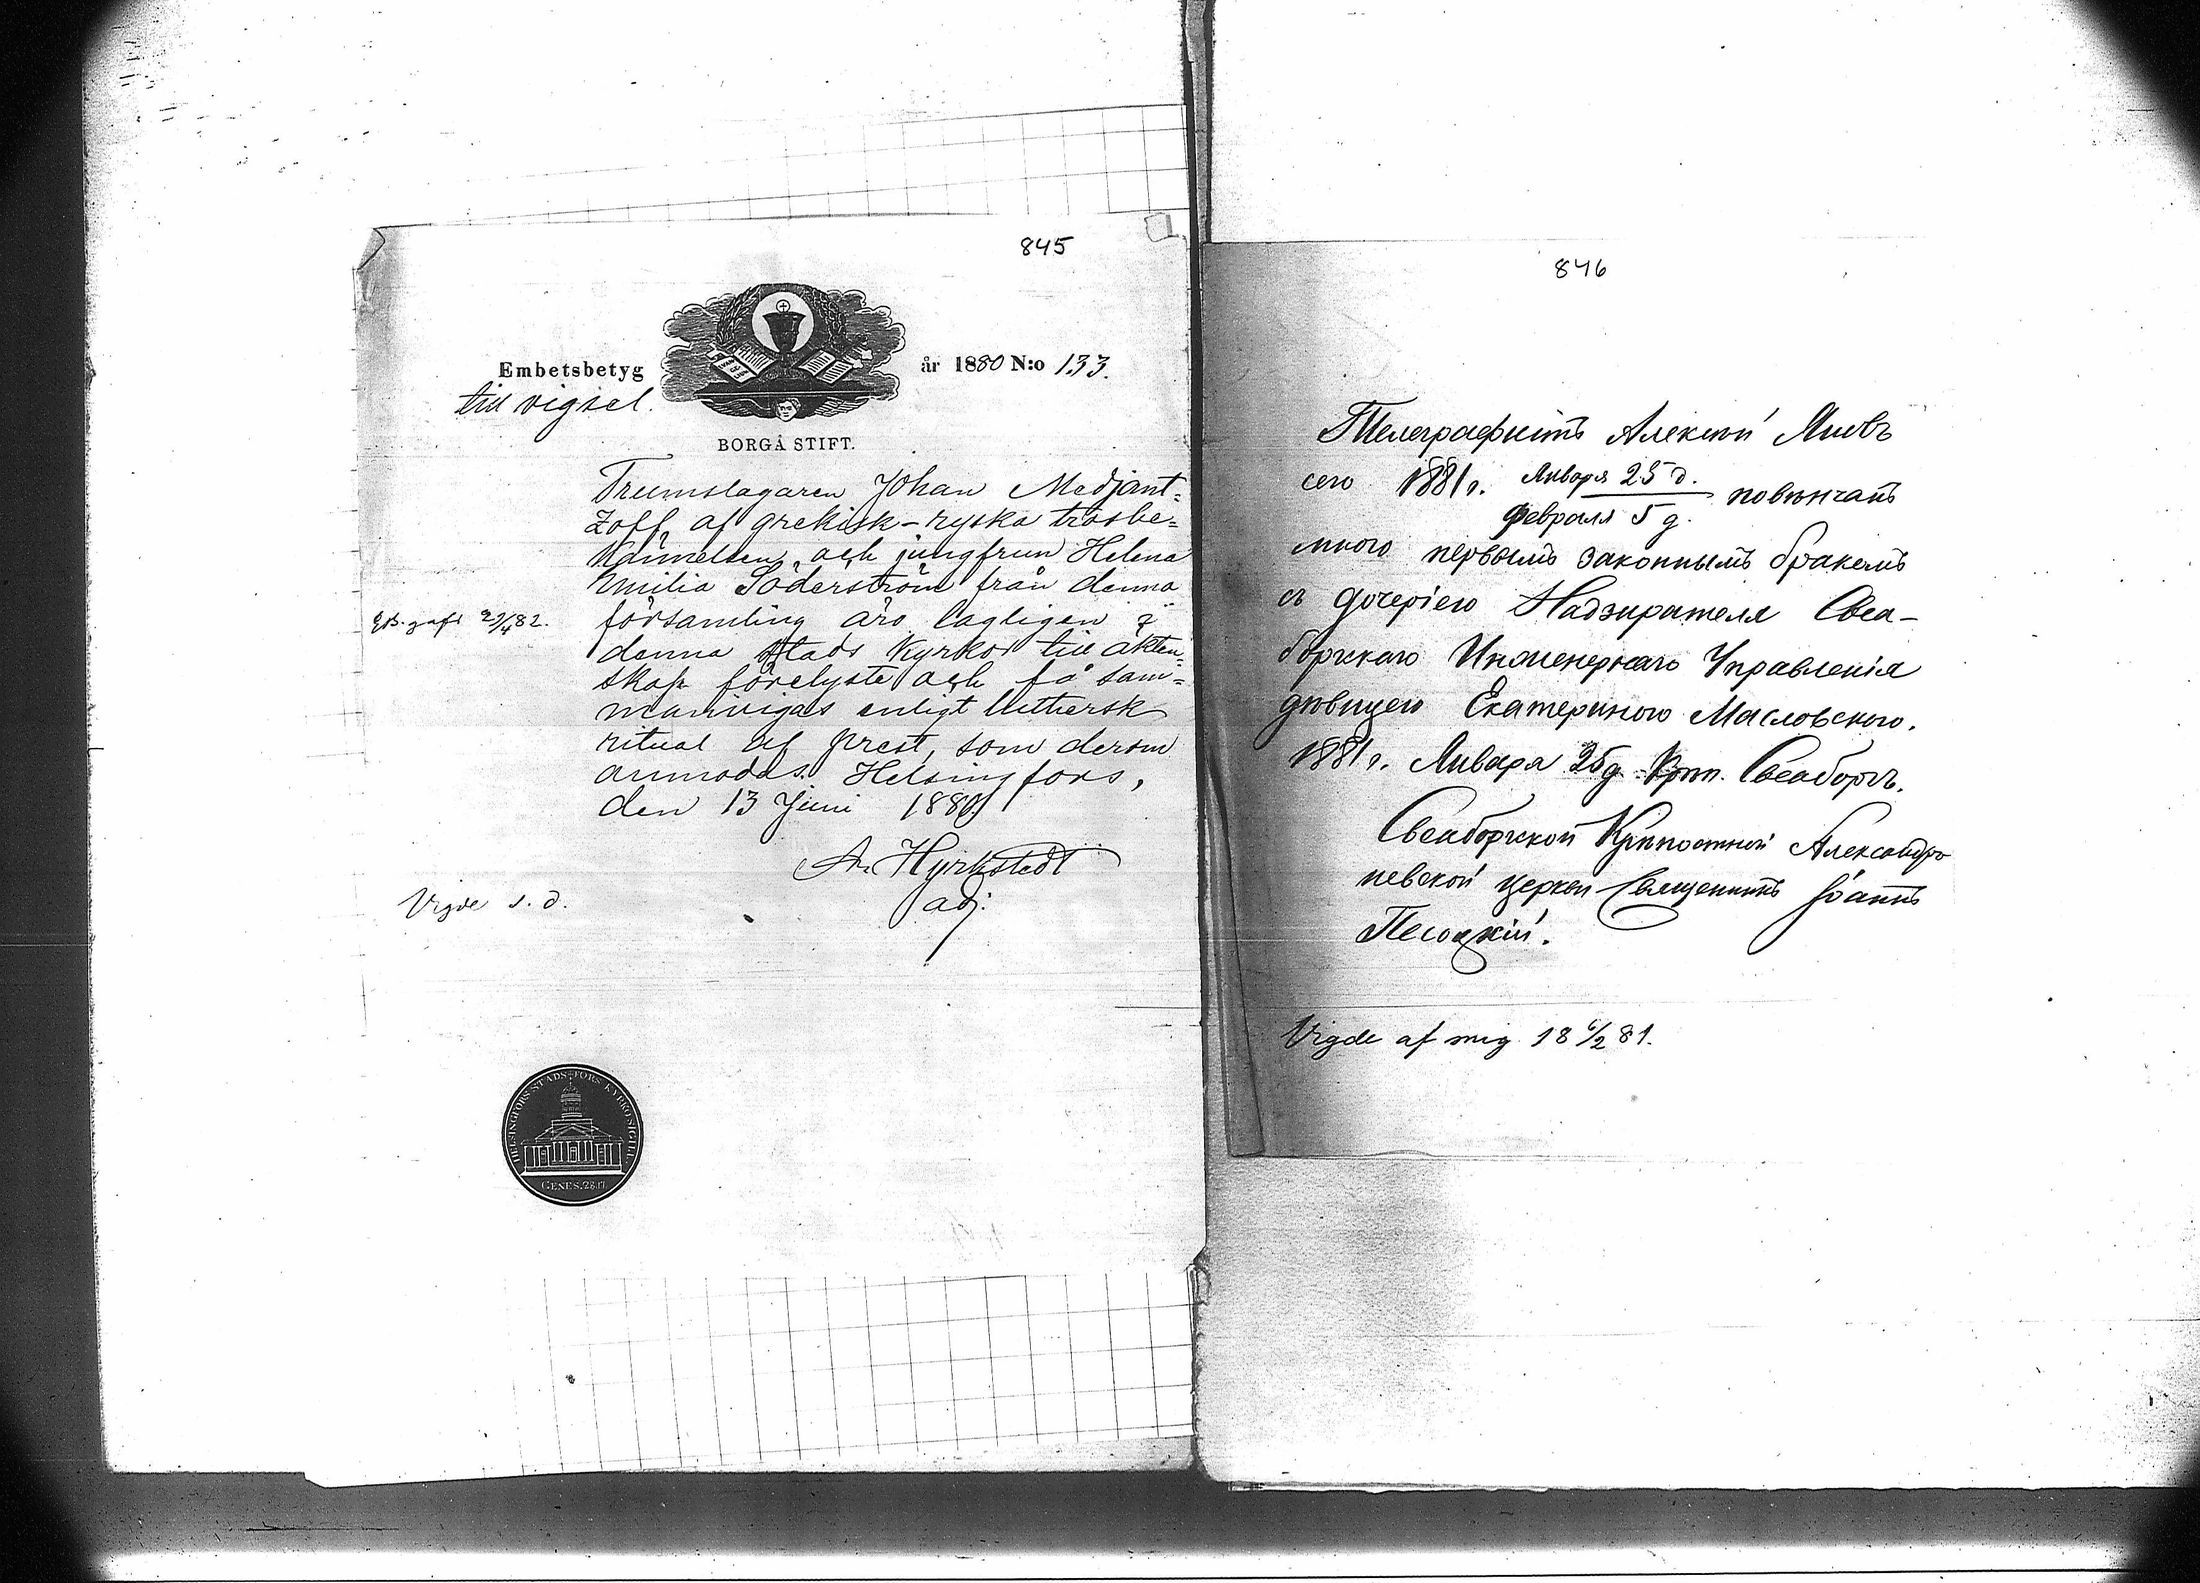 845
Embetsbetyg år 1880 N:o 133.
till vigsel.
BORGÅ STIFT.
Trumslagaren Johan Medjant=
zoff, af grekisk-ryska trosbe=
kännelsen, och jungfrun Helena
Emilia Söderström från denna
församling äro lagligen i
denna stads kyrkor till äkten=
skap förelyste och få sam=
manvigas enligt luthersk
ritual af prest, som derom
anmodas. Helsingfors,
den 13 Juni 1880.
A. Hyrkstedt
adj.
29/4 82.
Vigde s. d.
HELSINGFORS STADS KYRKO SIGILL.
GENES. 28.17.
846
Телеграфистъ Алексѣй
сего 1881 г. Января 25 д. повѣнчанъ
Февраля 5 д.
мною первымъ законнымъ бракомъ
съ дочерію Надзирателя Свеа-
боргскаго Инженернаго Управленія
дѣвицею Екатериною Масловскою.
1881 г. Января 25 д. Крѣп. Свеаборгъ.
Свеаборгской Крѣпостной Александро
невской церкви Священникъ Іоаннъ
Песоцкій.
Vigde af mig 18 6/2 81.